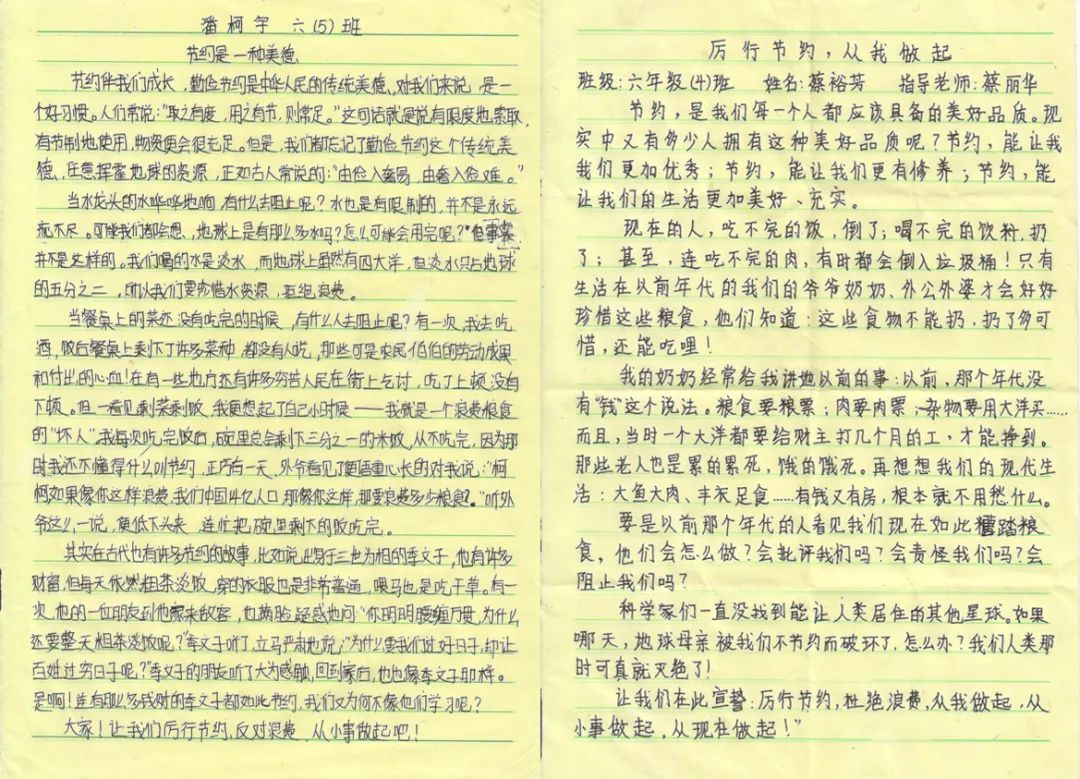 潘柯宇 六(5)班
节约是一种美德
节约伴我们成长,勤俭节约是中华人民的传统美德,对我们来说,是一
个好习惯。人们常说:“取之有度,用之有节,则常足。”这句话就是说有限度地索取,
有节制地使用,物资便会很充足。但是,我们都忘记了勤俭节约这个传统美
德,任意挥霍地球的资源,正如古人常说的:“由俭入奢易,由奢入俭难。”
当水龙头的水哗哗地响,有什么去阻止呢?水也是有限制的,并不是永远
流不尽。可能我们都会想,地球上是有那么多水吗?怎么可能会用完呢?”但事实
并不是这样的。我们喝的水是淡水,而地球上虽然有四大洋,但淡水只占地球
的五分之二,所以我们要珍惜水资源,拒绝浪费。
当餐桌上的菜还没有吃完的时候,有什么人去阻止呢?有一次,我去吃
酒,饭后餐桌上剩下了许多菜种,都没有人吃,那些可是农民伯伯的劳动成果
和付出的心血!在有一些地方还有许多穷苦人民在街上乞讨,吃了上顿没有
下顿。但一看见剩菜剩饭,我便想起了自己小时候——我就是一个浪费粮食
的“坏人”。我每次吃完饭后,碗里总会剩下三分之一的米饭,从不吃完,因为那
时我还不懂得什么叫节约,正巧有一天,外爷看见了便语重心长的对我说:“柯
柯如果像你这样浪费,我们中国14亿人口,那像你这样,那要浪费多少粮食。”听外
爷这么一说,便低下头来,连忙把碗里剩下的饭吃完。
其实在古代也有许多节约的故事,比如说出身于三世为相的李文子,他有许多
财富,但每天依然粗茶淡饭,穿的衣服也是非常普通,喂马也是吃干草。有一
次,他的一位朋友到他家来做客,也满脸疑惑地问:“你明明腰缠万贯,为什么
还要整天粗茶淡饭呢?”李文子听了,立马严肃地说:“为什么要我们过好日子,却让
百姓过穷日子呢?”李文子的朋友听了大为感触,回到家后,他也像李文子那样。
是啊!连有那么多钱财的李文子都如此节约,我们又为何不像他们学习呢?
大家!让我们厉行节约,反对浪费,从小事做起吧!
厉行节约,从我做起
班级:六年级(4)班 姓名:蔡裕芳 指导老师:蔡丽华
节约,是我们每一个人都应该具备的美好品质。现
实中又有多少人拥有这种美好品质呢?节约,能让我
我们更加优秀;节约,能让我们更有修养;节约,能
让我们的生活更加美好、充实。
现在的人,吃不完的饭,倒了;喝不完的饮料,扔
了;甚至,连吃不完的肉,有时都会倒入垃圾桶!只有
生活在以前年代的我们的爷爷奶奶、外公外婆才会好好
珍惜这些粮食,他们知道:这些食物不能扔,扔了多可
惜,还能吃哩!
我的奶奶经常给我讲她以前的事:以前,那个年代没
有“钱”这个说法。粮食要粮票;肉要肉票;杂物要用大洋买……
而且,当时一个大洋都要给财主打几个月的工,才能挣到。
那些老人也是累的累死,饿的饿死。再想想我们的现代生
活:大鱼大肉、丰衣足食……有钱又有房,根本就不用愁什么。
要是以前那个年代的人看见我们现在如此糟踏粮
食,他们会怎么做?会批评我们吗?会责怪我们吗?会
阻止我们吗?
科学家们一直没找到能让人类居住的其他星球。如果
哪天,地球母亲被我们不节约而破环了,怎么办?我们人类那
时可真就灭绝了!
让我们在此宣誓:厉行节约,杜绝浪费,从我做起,从
小事做起,从现在做起!”